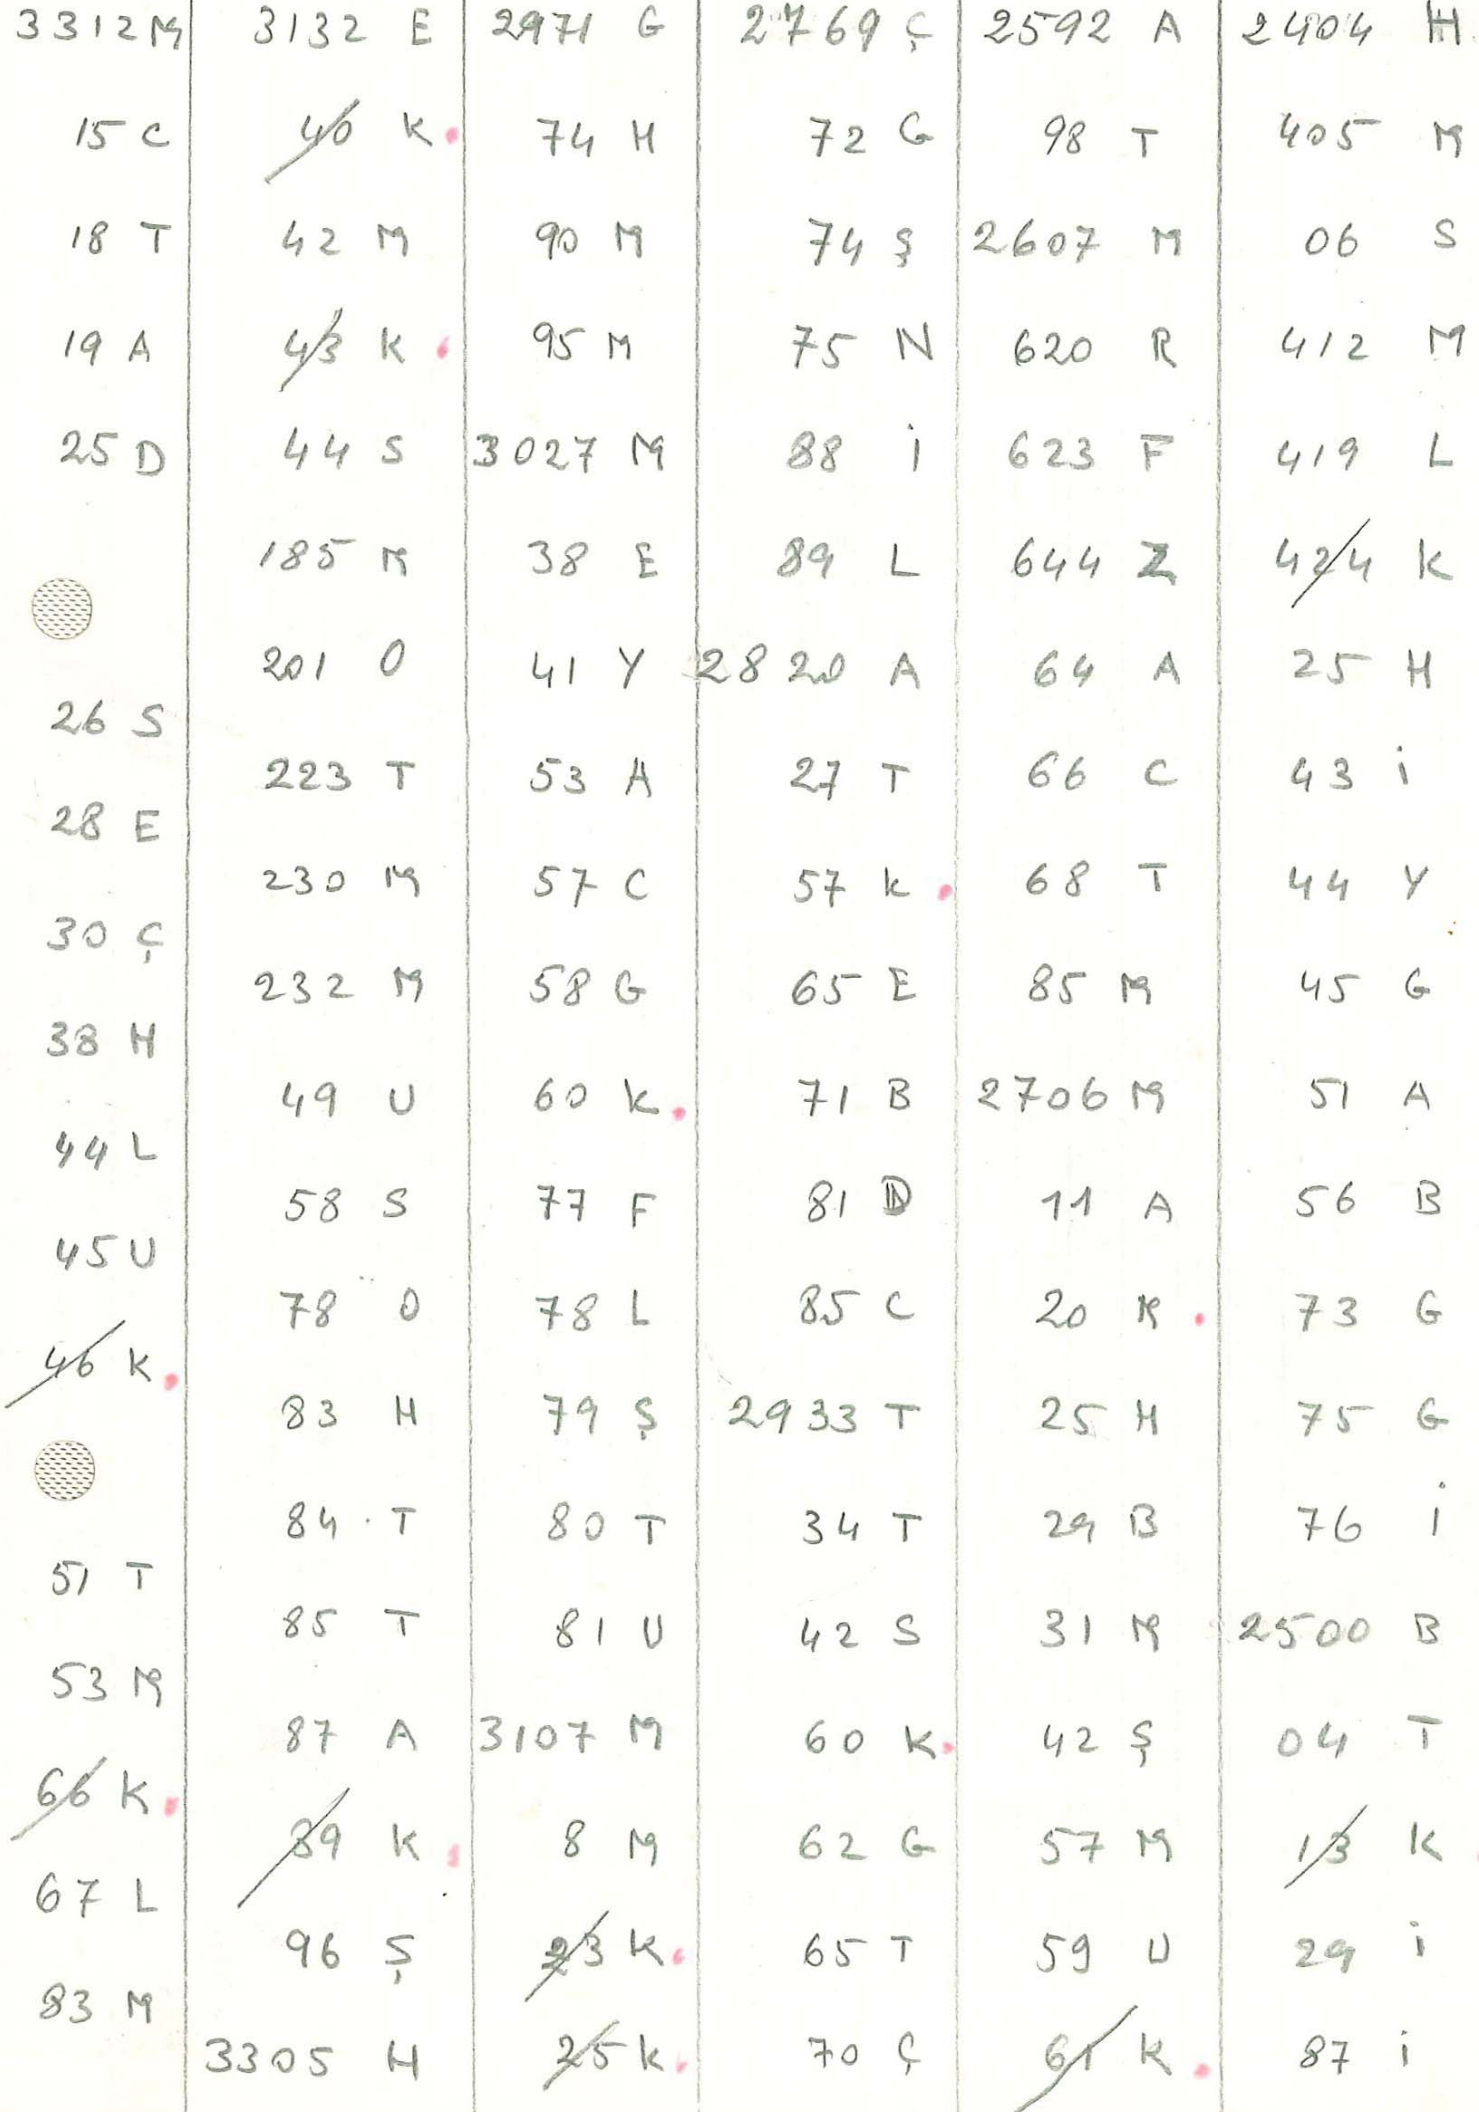 3312 M
15 C
18 T
19 A
25 D
26 S
28 E
30 Ç
38 H
44 L
45 U
46 K
51 T
53 M
66 K
67 L
83 M
3132 E
40 K
42 M
43 K
44 S
185 M
201 O
223 T
230 M
232 M
49 U
58 S
78 O
83 H
84 T
85 T
87 A
89 K
96 Ş
3305 H
2971 G
74 H
90 M
95 M
3027 M
38 E
41 Y
53 A
57 C
58 G
60 K
77 F
78 L
79 Ş
80 T
81 U
3107 M
8 M
23 K
25 K
2769 Ç
72 G
74 Ş
75 N
88 İ
89 L
2820 A
27 T
57 K
65 E
71 B
81 D
85 C
2933 T
34 T
42 S
60 K
62 G
65 T
70 Ç
2592 A
98 T
2607 M
620 R
623 F
644 Z
64 A
66 C
68 T
85 M
2706 M
11 A
20 K
25 H
29 B
31 M
42 Ş
57 M
59 U
61 K
2404 H
405 M
06 S
412 M
419 L
424 K
25 H
43 İ
44 Y
45 G
51 A
56 B
73 G
75 G
76 İ
2500 B
04 T
13 K
29 İ
87 İ